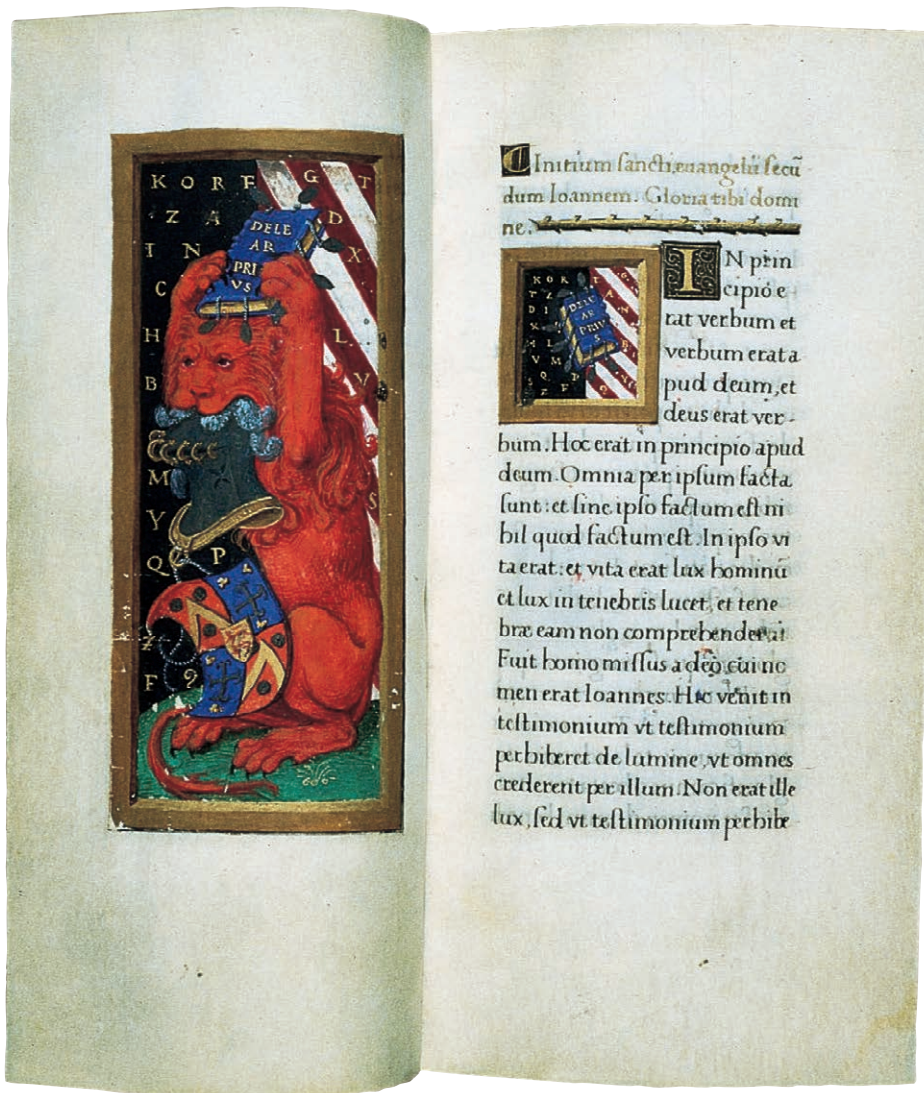 K O R F G T
Z A D
I N X
DELE
AR
PRI
VS
C
H L
B V
M S
Y
Q P
Z
F 9
Initium sancti euangelii secū
dum Ioannem. Gloria tibi domi
ne.
IN prin
cipio e
rat verbum et
verbum erat a
pud deum, et
deus erat ver-
bum. Hoc erat in principio apud
deum. Omnia per ipsum facta
sunt: et sine ipso factum est ni
hil quod factum est. In ipso vi
ta erat: et vita erat lux hominū
et lux in tenebris lucet, et tene
bræ eam non comprehenderūt
Fuit homo missus a deo, cui no
men erat Ioannes. Hic venit in
testimonium vt testimonium
perhiberet de lumine, vt omnes
crederent per illum. Non erat ille
lux, sed vt testimonium perhibe
K O R T
DELE
AR
PRIV
S